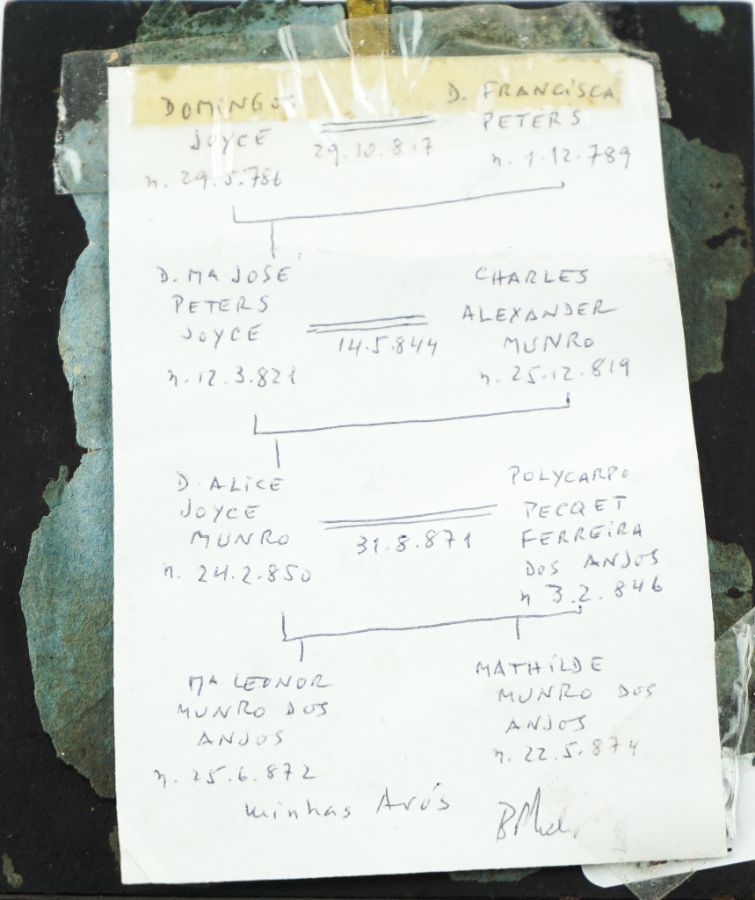 DOMINGOS
JOYCE
n. 29.5.786
29.10.817
D. FRANCISCA
PETERS
n. 1.12.789
D. Mª JOSÉ
PETERS
JOYCE
n. 12.3.821
14.5.844
CHARLES
ALEXANDER
MUNRO
n. 25.12.819
D. ALICE
JOYCE
MUNRO
n. 24.2.850
31.8.871
POLYCARPO
PECQET
FERREIRA
DOS ANJOS
n 3.2.846
Mª LEONOR
MUNRO DOS
ANJOS
n. 25.6.872
MATHILDE
MUNRO DOS
ANJOS
n. 22.5.874
minhas Avós